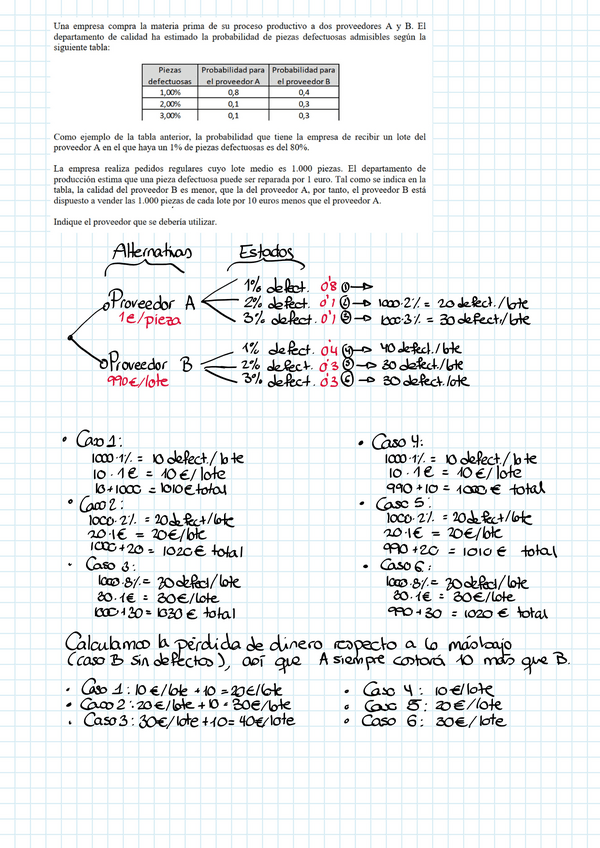 Una empresa compra la materia prima de su proceso productivo a dos proveedores A y B. El
departamento de calidad ha estimado la probabilidad de piezas defectuosas admisibles según la
siguiente tabla:
Piezas defectuosas | Probabilidad para el proveedor A | Probabilidad para el proveedor B
1,00% | 0,8 | 0,4
2,00% | 0,1 | 0,3
3,00% | 0,1 | 0,3
Como ejemplo de la tabla anterior, la probabilidad que tiene la empresa de recibir un lote del
proveedor A en el que haya un 1% de piezas defectuosas es del 80%.
La empresa realiza pedidos regulares cuyo lote medio es 1.000 piezas. El departamento de
producción estima que una pieza defectuosa puede ser reparada por 1 euro. Tal como se indica en la
tabla, la calidad del proveedor B es menor, que la del proveedor A, por tanto, el proveedor B está
dispuesto a vender las 1.000 piezas de cada lote por 10 euros menos que el proveedor A.
Indique el proveedor que se debería utilizar.
Alternativas Estados
1% defect. 0'8 ① →
Proveedor A 2% defect. 0'1 ② → 1000·2% = 20 defect./lote
1€/pieza 3% defect. 0'1 ③ → 1000·3% = 30 defect./lote
1% defect. 0'4 ④ → 40 defect./lote
Proveedor B 2% defect. 0'3 ⑤ → 30 defect./lote
990€/lote 3% defect. 0'3 ⑥ → 30 defect. lote
• Caso 1:
1000·1% = 10 defect./lote
10·1€ = 10€/lote
10+1000 = 1010€ total
• Caso 2:
1000·2% = 20 defect/lote
20·1€ = 20€/lote
1000+20 = 1020€ total
• Caso 3:
1000·3% = 30 defect/lote
30·1€ = 30€/lote
1000+30 = 1030€ total
• Caso 4:
1000·1% = 10 defect./lote
10·1€ = 10€/lote
990+10 = 1000€ total
• Caso 5:
1000·2% = 20 defect/lote
20·1€ = 20€/lote
990+20 = 1010€ total
• Caso 6:
1000·3% = 30 defect/lote
30·1€ = 30€/lote
990+30 = 1020€ total
Calculamos la pérdida de dinero respecto a lo más bajo
(caso B sin defectos), así que A siempre costará 10 más que B.
• Caso 1: 10€/lote +10 = 20€/lote
• Caso 2: 20€/lote +10 = 30€/lote
• Caso 3: 30€/lote +10 = 40€/lote
• Caso 4: 10€/lote
• Caso 5: 20€/lote
• Caso 6: 30€/lote